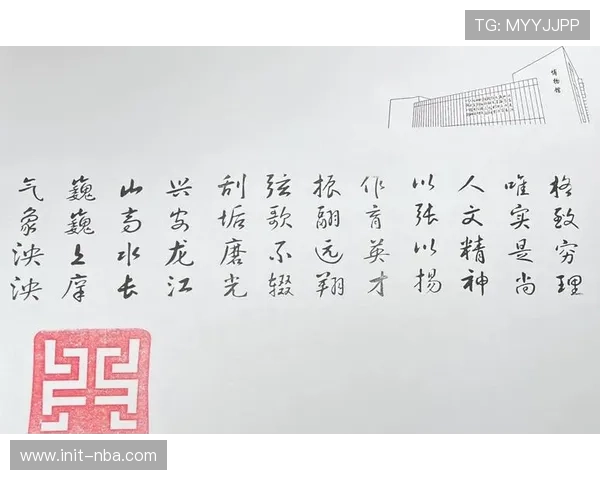 TG: MYYJJPP
博物馆
格致穷理
唯实是尚
人文精神
以张以揚
作育英才
振翮远翔
弦歌不辍
刮垢磨光
兴安龙江
山高水长
巍巍上庠
气象泱泱
www.init-nba.com